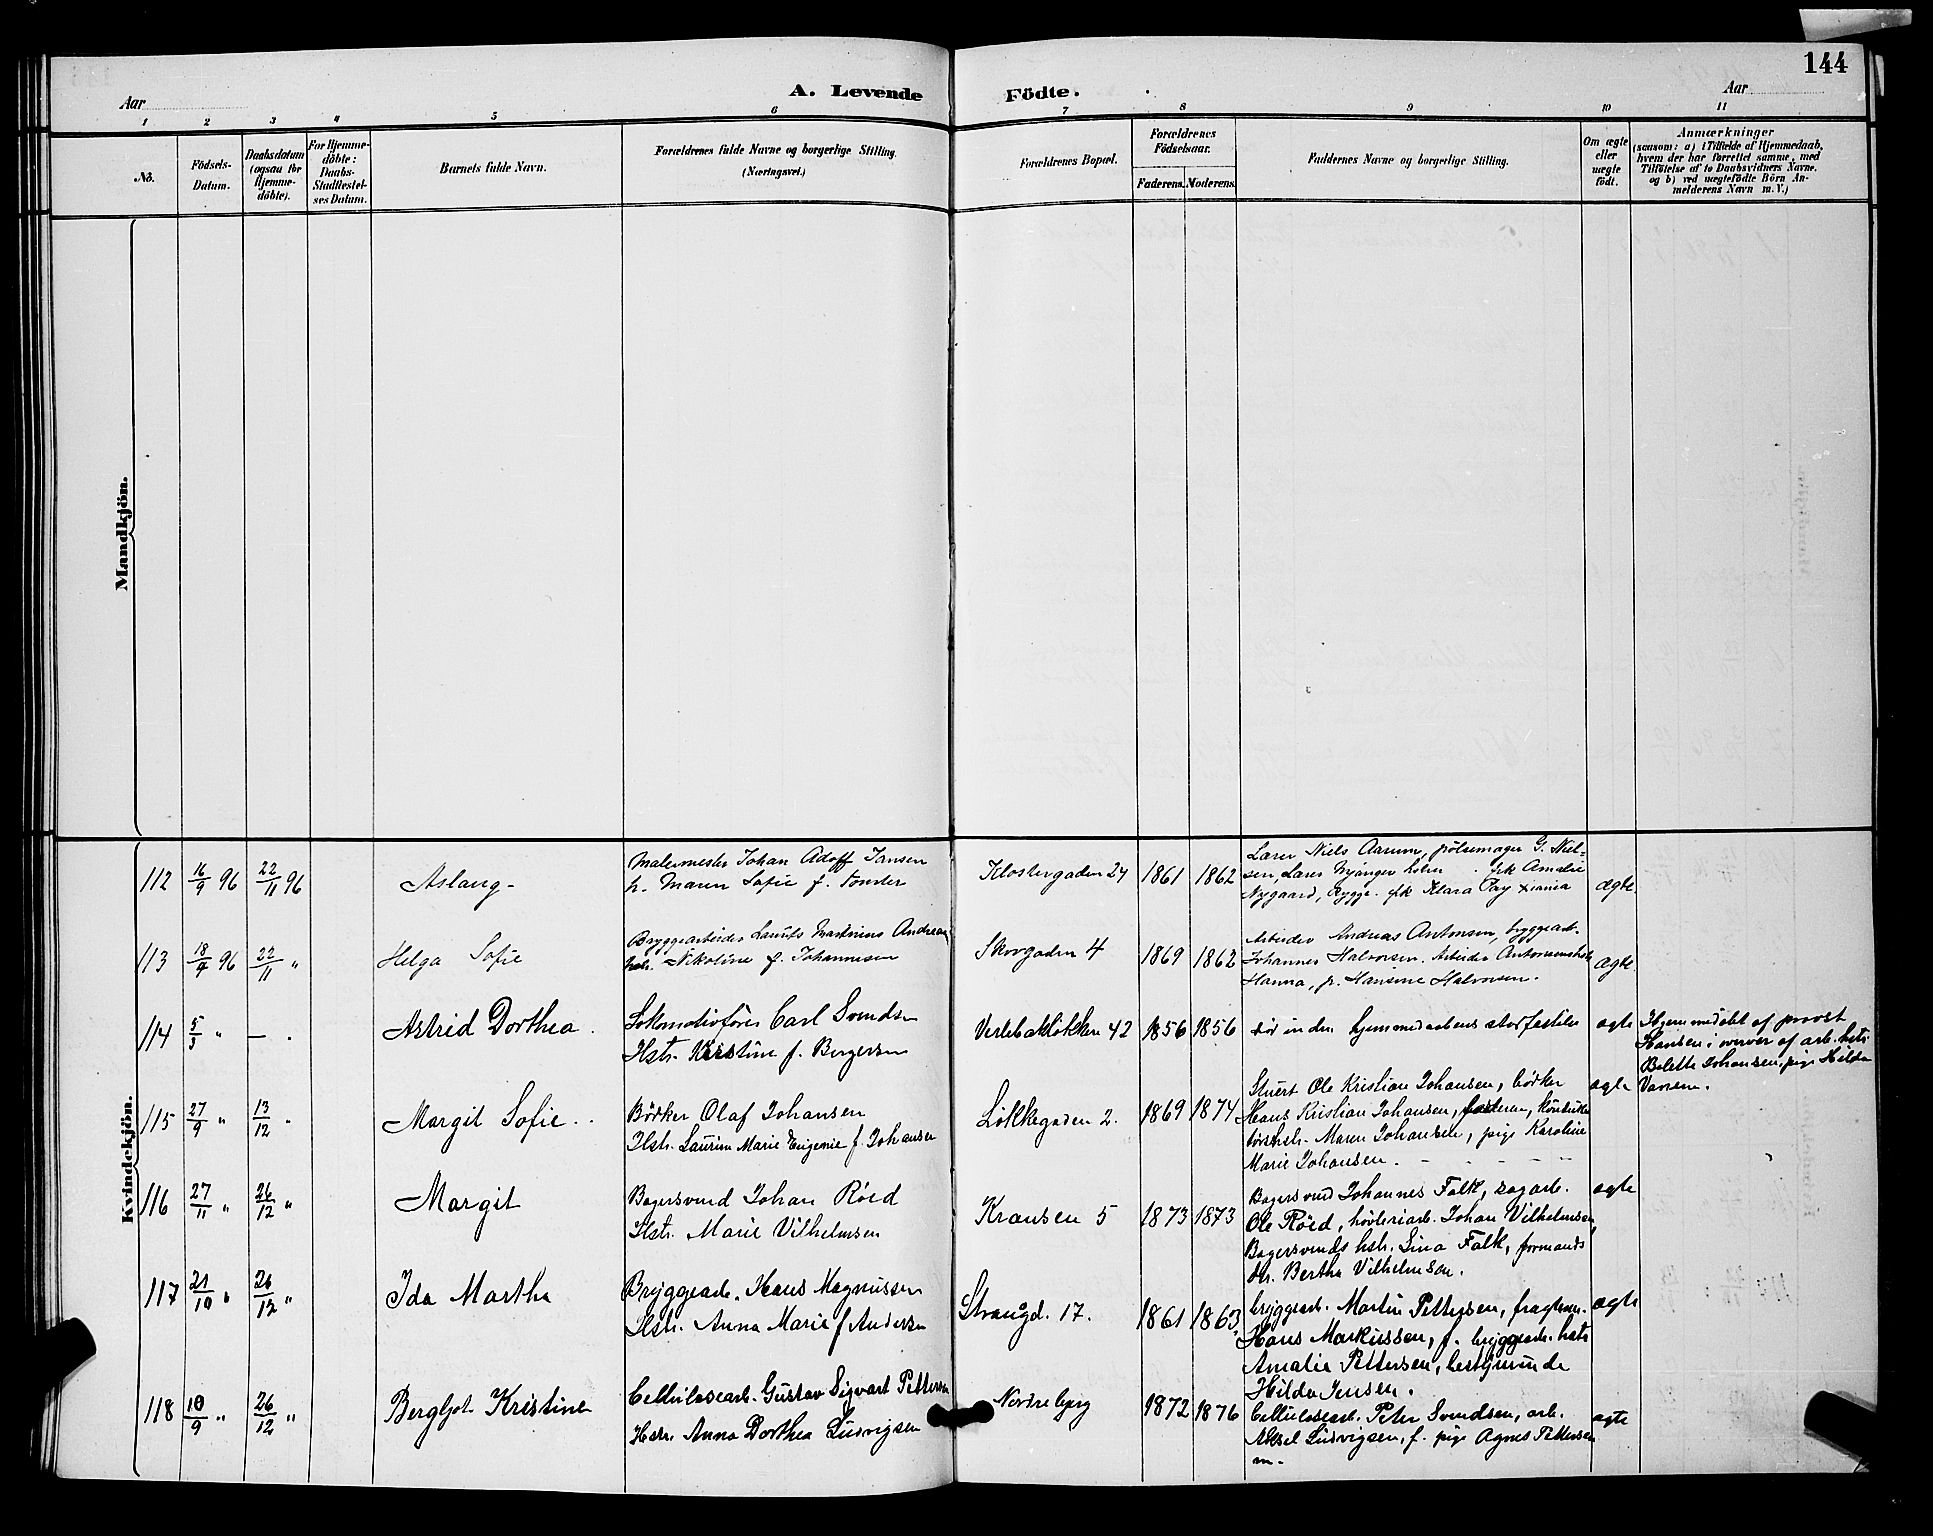 144
Aar
A. Levende
Födte.
Aar
1 2 3 4 5 6 7 8 9 10 11
No.
Födsels-
Datum.
Daabsdatum
(ogsaa for
Hjemme-
döbte).
For Hjemme-
döbte:
Daabs-
Stadfæstel-
ses Datum.
Barnets fulde Navn.
Forældrenes fulde Navne og borgerlige Stilling.
(Næringsvei.)
Forældrenes Bopæl.
Forældrenes
Födselsaar.
Faderens. Moderens.
Faddernes Navne og borgerlige Stilling.
Om ægte
eller
uægte
födt.
Anmærkninger
(saasom: a) i Tilfælde af Hjemmedaab,
hvem der har forrettet samme, med
Tilföielse af to Daabsvidners Navne,
og b) ved uægtefödte Börn An-
melderens Navn m. V.)
Mandkjön.
Kvindekjön.
112 16/9 96 22/11 96 Aslaug
Malermester Johan Adolf Jansen
h. Maren Sofie f.
Klostergaden 24 1861 1862
Lærer Niels Aarum, pölsemager G. Niel-
sen, Lærer frk Amalie
Nygaard, Rygge. frk Klara Xiania
ægte
113 18/9 96 22/11 " Helga Sofie
Bryggearbeider Laurits Martinius Andreas
hstr. Nikoline f. Johannesen
Skovgaden 4 1869 1862
Arbeider Andreas Antonsen, bryggearb.
Johannes Halvorsen. Arbeider Antonsens hstr
Hanna, p. Hansine Halvorsen.
ægte
114 5/3 " — . Astrid Dorthea .
Lokomotivförer Carl Svendsen
Hstr. Kristine f. Bergersen
Verlebaklökken 42 1856 1856
dör inden hjemmedaabens stadfestelse
ægte
Hjemmedöbt af provst
Hansen i overvær af arb. hstr
Belette Johansen, pige Hilda
115 27/9 " 13/12 " Margit Sofie . .
Bödker Olaf Johansen
Hstr. Laurine Marie Eugenie f. Johansen
Lökkegaden 2. 1869 1874
Stuert Ole Kristian Johansen, bödker
Hans Kristian Johansen, faderen,
hstr. Maren Johansen, pige Karoline
Marie Johansen.
ægte
116 27/11 " 26/12 " Margit
Bagersvend Johan Röed
Hstr. Marie Vilhelmsen
Kransen 5 1873 1873
Bagersvend Johannes Falk, sagarb.
Ole Röed, hövleriarb. Johan Vilhelmsen,
Bagersvends hstr. Lina Falk, formands
dtr. Bertha Vilhelmsen.
ægte
117 21/10 " 26/12 " Ida Martha
Bryggearb. Hans Magnussen
Hstr. Anna Marie f Andersen
Strangd. 17. 1861 1863
bryggearb. Martin Pettersen, fragtem.
Hans Markussen, f. bryggearb. hstr
Amalie Pettersen, bestyrerinde
Hilda Jensen.
ægte
118 10/9 " 26/12 " Bergljot Kristine
Cellulosearb. Gustav Sigvart Pettersen
Hstr. Anna Dorthea Ludvigsen
Nordre bjerg 1872 1876
Cellulosearb. Peter Svendsen, arb.
Aksel Ludvigsen, f. pige Agnes Pettersen
m.
ægte